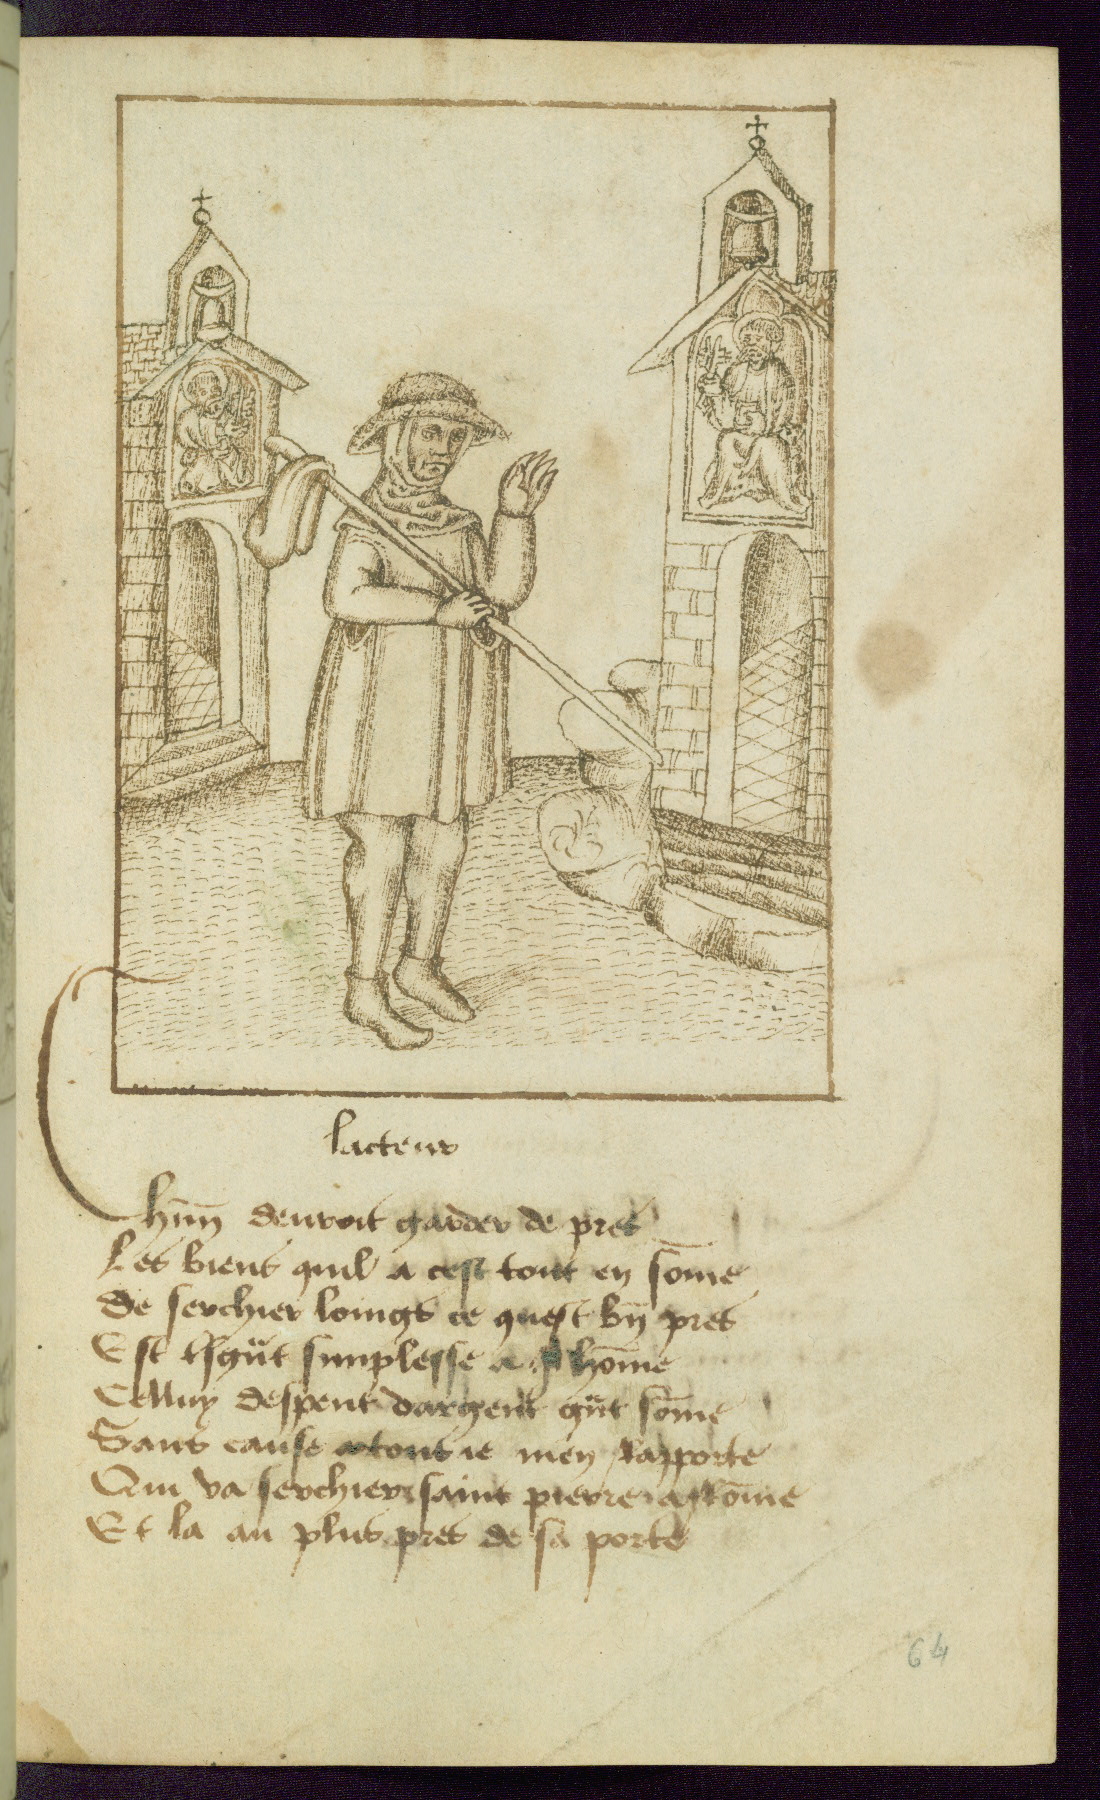 lacteur
Chun̄ deuroit garder de pres
Les biens quil a cest tout en som̄e
De serchier loings ce quest bn̄ pres
Est tsgūt simplesse a hom̄e
Celluy despent dargent gūt som̄e
Sans cause atout ie men rapporte
Qui va serchier saint pierre a rom̄e
Et la au plus pres de sa porte
64